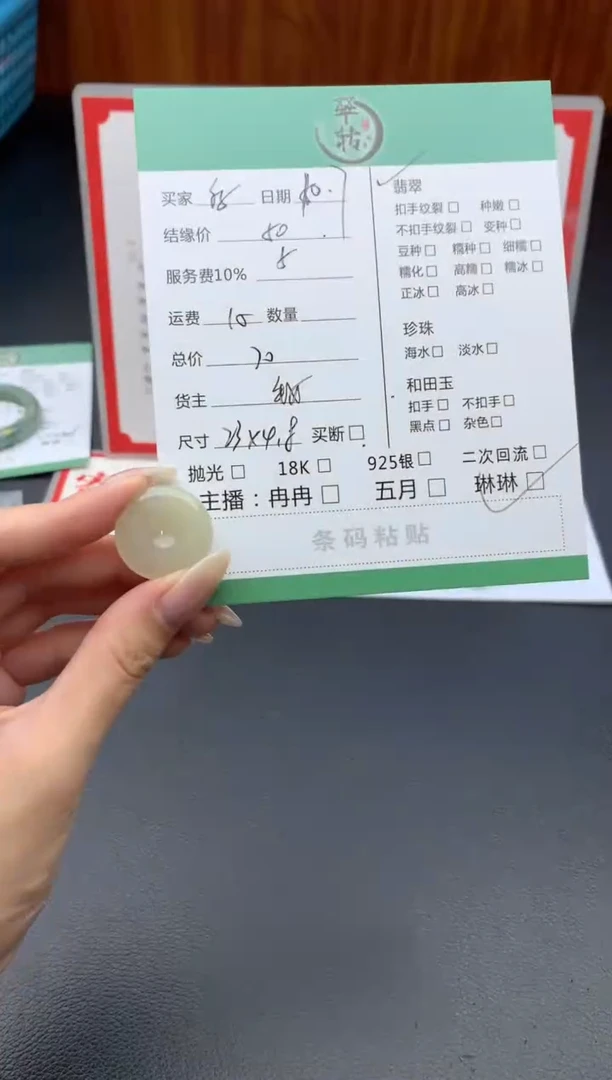 驿祜
买家 日期
结缘价 80
服务费10% 8
运费 10 数量
总价
货主
尺寸 23×4.8 买断□
抛光□ 18K□ 925银□ 二次回流□
主播：冉冉□ 五月□ 琳琳□
条码粘贴
翡翠
扣手纹裂□ 种嫩□
不扣手纹裂□ 变种□
豆种□ 糯种□ 细糯□
糯化□ 高糯□ 糯冰□
正冰□ 高冰□
珍珠
海水□ 淡水□
和田玉
扣手□ 不扣手□
黑点□ 杂色□